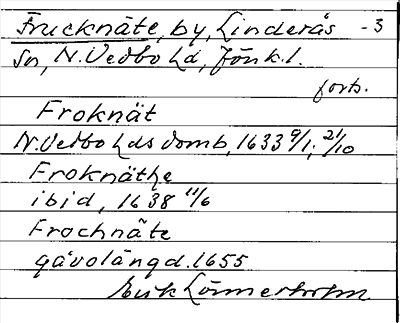 Frucknäte, by, Linderås -3
sn, N. Vedbo hd, Jönk.l.
forts.
Froknät
N. Vedbo hds domb, 1633 9/1; 21/10
Froknäthe
ibid, 1638 11/6
Frochnäte
gåvolängd. 1655
Erik Lönnerholm